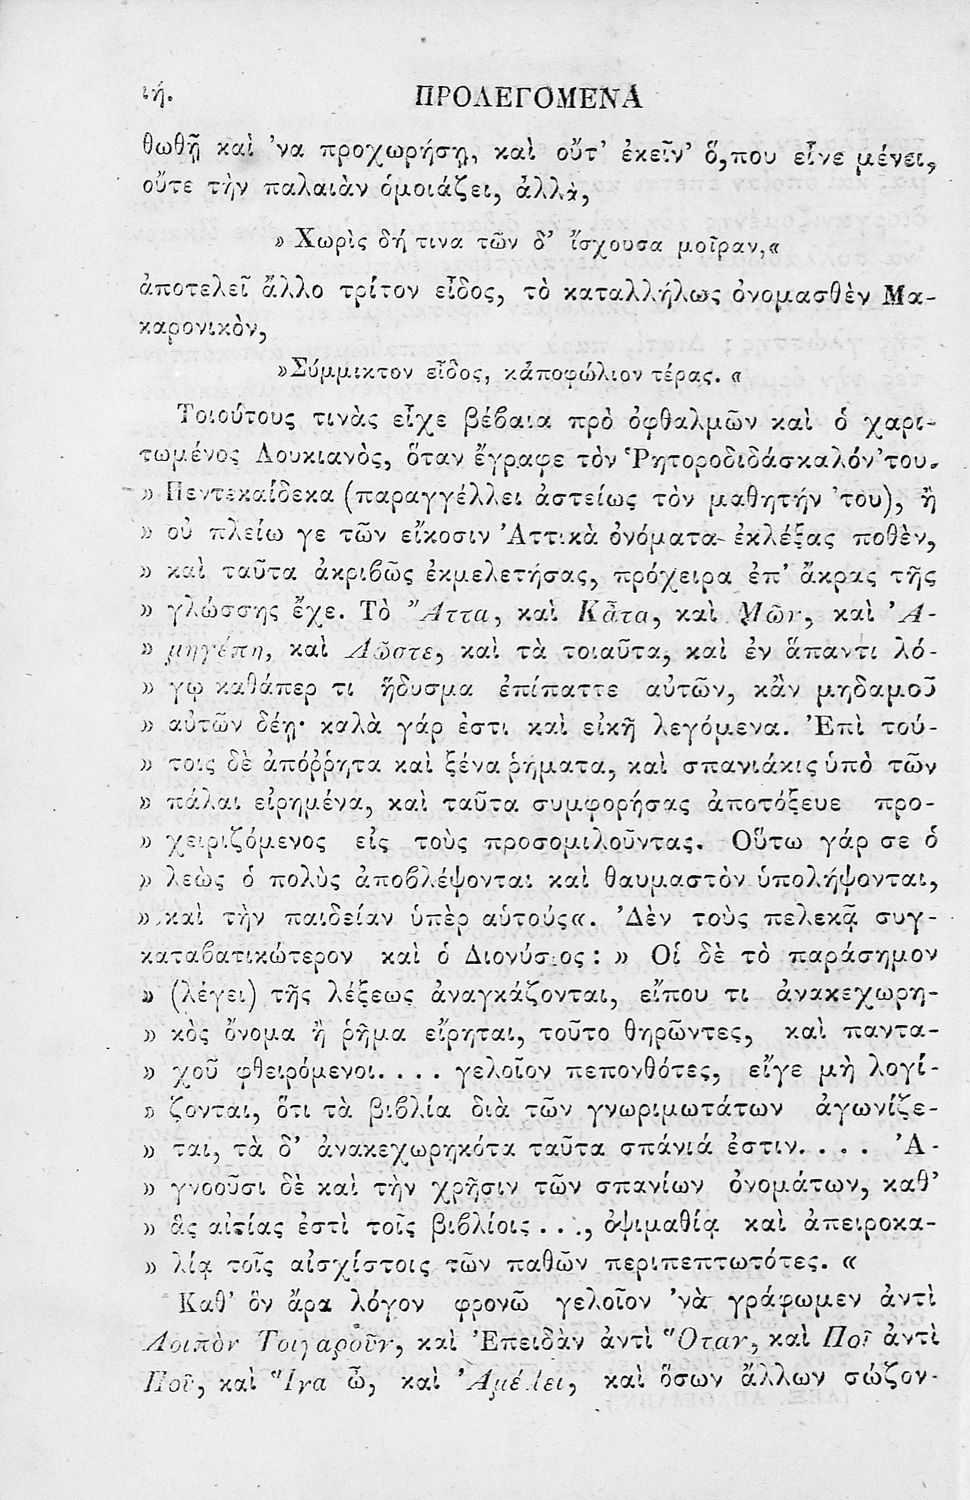 ιή. ΠΡΟΛΕΓΟΜΕΝΑ
θωθῇ καὶ ’να προχωρήσῃ, καὶ οὔτ’ ἐκεῖν’ ὅ,που εἶνε μένει,
οὔτε τὴν παλαιὰν ὁμοιάζει, ἀλλὰ,
» Χωρὶς δή τινα τῶν δ’ ἴσχουσα μοῖραν,«
ἀποτελεῖ ἄλλο τρίτον εἶδος, τὸ καταλλήλως ὀνομασθὲν Μα-
καρονικὸν,
»Σύμμικτον εἶδος, κἀποφώλιον τέρας. «
Τοιούτους τινὰς εἶχε βέβαια πρὸ ὀφθαλμῶν καὶ ὁ χαρι-
τωμένος Λουκιανὸς, ὅταν ἔγραφε τὸν Ῥητοροδιδάσκαλόν’του.
» Πεντεκαίδεκα (παραγγέλλει ἀστείως τὸν μαθητήν ’του), ἢ
» οὐ πλείω γε τῶν εἴκοσιν Ἀττικὰ ὀνόματα ἐκλέξας ποθὲν,
» καὶ ταῦτα ἀκριβῶς ἐκμελετήσας, πρόχειρα ἐπ’ ἄκρας τῆς
» γλώσσης ἔχε. Τὸ Ἄττα, καὶ Κᾆτα, καὶ Μῶν, καὶ Ἀ-
» μηγέπη, καὶ Λῷστε, καὶ τὰ τοιαῦτα, καὶ ἐν ἅπαντι λό-
» γῳ καθάπερ τι ἥδυσμα ἐπίπαττε αὐτῶν, κἂν μηδαμοῦ
» αὐτῶν δέῃ· καλὰ γάρ ἐστι καὶ εἰκῆ λεγόμενα. Ἐπὶ τού-
» τοις δὲ ἀπόῤῥητα καὶ ξένα ῥήματα, καὶ σπανιάκις ὑπὸ τῶν
» πάλαι εἰρημένα, καὶ ταῦτα συμφορήσας ἀποτόξευε προ-
» χειριζόμενος εἰς τοὺς προσομιλοῦντας. Οὕτω γάρ σε ὁ
» λεὼς ὁ πολὺς ἀποβλέψονται καὶ θαυμαστὸν ὑπολήψονται,
» καὶ τὴν παιδείαν ὑπὲρ αὑτούς«. Δὲν τοὺς πελεκᾷ συγ-
καταβατικώτερον καὶ ὁ Διονύσιος : » Οἱ δὲ τὸ παράσημον
» (λέγει) τῆς λέξεως ἀναγκάζονται, εἴπου τι ἀνακεχωρη-
» κὸς ὄνομα ἢ ῥῆμα εἴρηται, τοῦτο θηρῶντες, καὶ παντα-
» χοῦ φθειρόμενοι. . . . γελοῖον πεπονθότες, εἴγε μὴ λογί-
» ζονται, ὅτι τὰ βιβλία διὰ τῶν γνωριμωτάτων ἀγωνίζε-
» ται, τὰ δ’ ἀνακεχωρηκότα ταῦτα σπάνιά ἐστιν. . . . Ἀ-
» γνοοῦσι δὲ καὶ τὴν χρῆσιν τῶν σπανίων ὀνομάτων, καθ’
» ἃς αἰτίας ἐστὶ τοῖς βιβλίοις . . ., ὀψιμαθίᾳ καὶ ἀπειροκα-
» λίᾳ τοῖς αἰσχίστοις τῶν παθῶν περιπεπτωτότες. «
Καθ’ ὃν ἄρα λόγον φρονῶ γελοῖον ’νὰ γράφωμεν ἀντὶ
Λοιπὸν Τοιγαροῦν, καὶ Ἐπειδὰν ἀντὶ Ὅταν, καὶ Ποῖ ἀντὶ
Ποῦ, καὶ Ἵνα ὦ, καὶ Ἀμέλει, καὶ ὅσων ἄλλων σώζον-